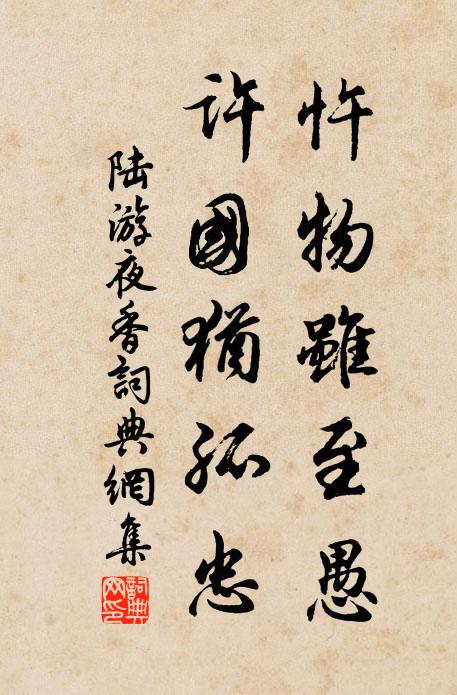 忤物雖至愚
許國猶孤忠
陸游夜香詞典網集
詞典网印